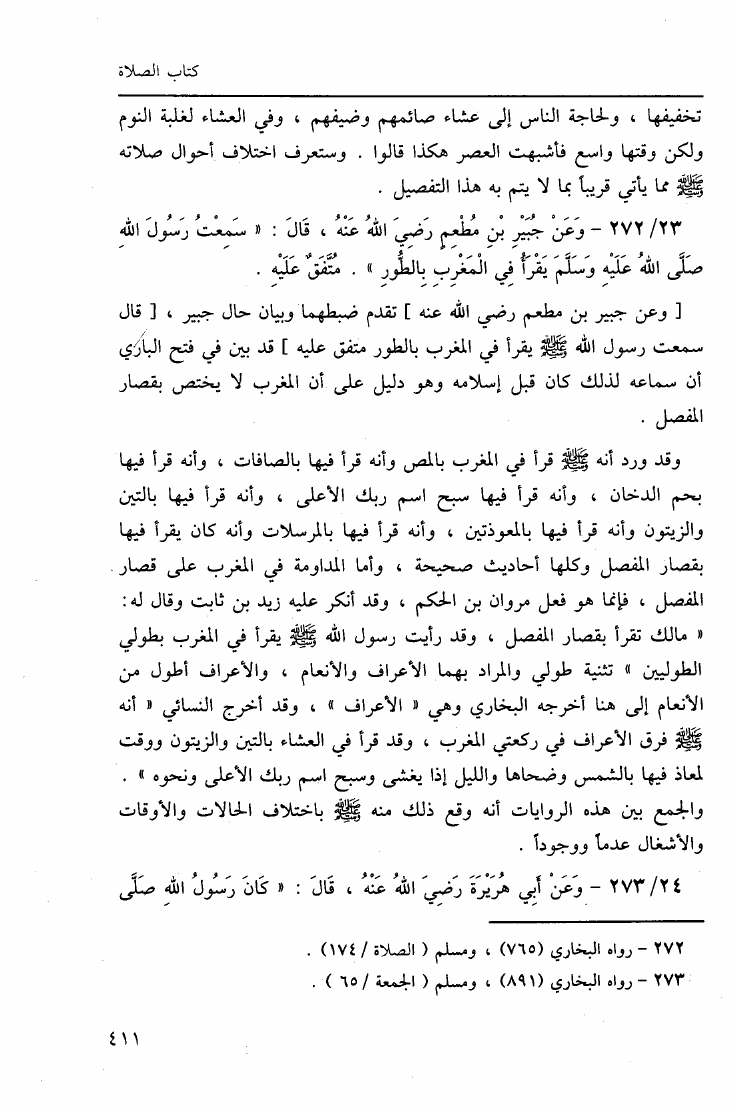 كتاب الصلاة
تخفيفها ، ولحاجة الناس إلى عشاء صائمهم وضيفهم ، وفي العشاء لغلبة النوم
ولكن وقتها واسع فأشبهت العصر هكذا قالوا . وستعرف اختلاف أحوال صلاته
ﷺ مما يأتي قريباً بما لا يتم به هذا التفصيل .
٢٧٢/٢٣ – وَعَنْ جُبَيْرِ بْنِ مُطْعِمٍ رَضِيَ اللهُ عَنْهُ ، قَالَ : « سَمِعْتُ رَسُولَ اللهِ
صَلَّى اللهُ عَلَيْهِ وَسَلَّمَ يَقْرَأُ فِي الْمَغْرِبِ بِالطُّورِ » . مُتَّفَقٌ عَلَيْهِ .
[ وعن جبير بن مطعم رضي الله عنه ] تقدم ضبطهما وبيان حال جبير ، [ قال
سمعت رسول الله ﷺ يقرأ في المغرب بالطور متفق عليه ] قد بين في فتح الباري
أن سماعه لذلك كان قبل إسلامه وهو دليل على أن المغرب لا يختص بقصار
المفصل .
وقد ورد أنه ﷺ قرأ في المغرب بالمص وأنه قرأ فيها بالصافات ، وأنه قرأ فيها
بحم الدخان ، وأنه قرأ فيها سبح اسم ربك الأعلى ، وأنه قرأ فيها بالتين
والزيتون وأنه قرأ فيها بالمعوذتين ، وأنه قرأ فيها بالمرسلات وأنه كان يقرأ فيها
بقصار المفصل وكلها أحاديث صحيحة ، وأما المداومة في المغرب على قصار
المفصل ، فإنما هو فعل مروان بن الحكم ، وقد أنكر عليه زيد بن ثابت وقال له :
« مالك تقرأ بقصار المفصل ، وقد رأيت رسول الله ﷺ يقرأ في المغرب بطولي
الطوليين » تثنية طولي والمراد بهما الأعراف والأنعام ، والأعراف أطول من
الأنعام إلى هنا أخرجه البخاري وهي « الأعراف » ، وقد أخرج النسائي « أنه
ﷺ فرق الأعراف في ركعتي المغرب ، وقد قرأ في العشاء بالتين والزيتون ووقت
لمعاذ فيها بالشمس وضحاها والليل إذا يغشى وسبح اسم ربك الأعلى ونحوه » .
والجمع بين هذه الروايات أنه وقع ذلك منه ﷺ باختلاف الحالات والأوقات
والأشغال عدماً ووجوداً .
٢٧٣/٢٤ – وَعَنْ أَبِي هُرَيْرَةَ رَضِيَ اللهُ عَنْهُ ، قَالَ : « كَانَ رَسُولُ اللهِ صَلَّى
٢٧٢ – رواه البخاري (٧٦٥) ، ومسلم ( الصلاة / ١٧٤) .
٢٧٣ – رواه البخاري (٨٩١) ، ومسلم ( الجمعة / ٦٥ ) .
٤١١